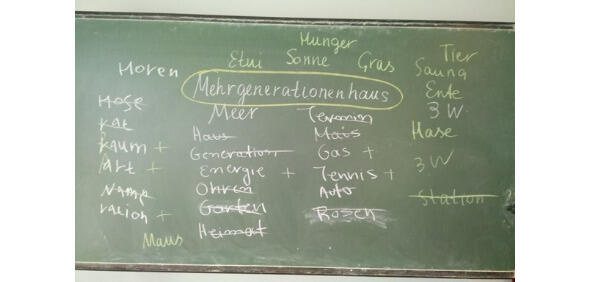 Hunger
Tier
Etui Sonne Gras
Horen
Sauna
Mehrgenerationenhaus
Ente
Hose
Meer
Termin
3 W.
rat
Haus
Mais
Hase
raum +
Generation
Gas +
Art +
Energie +
Tennis +
3 W
Ohren
Auto
Station
ration +
Garten
Rosen
Maus
Heimat